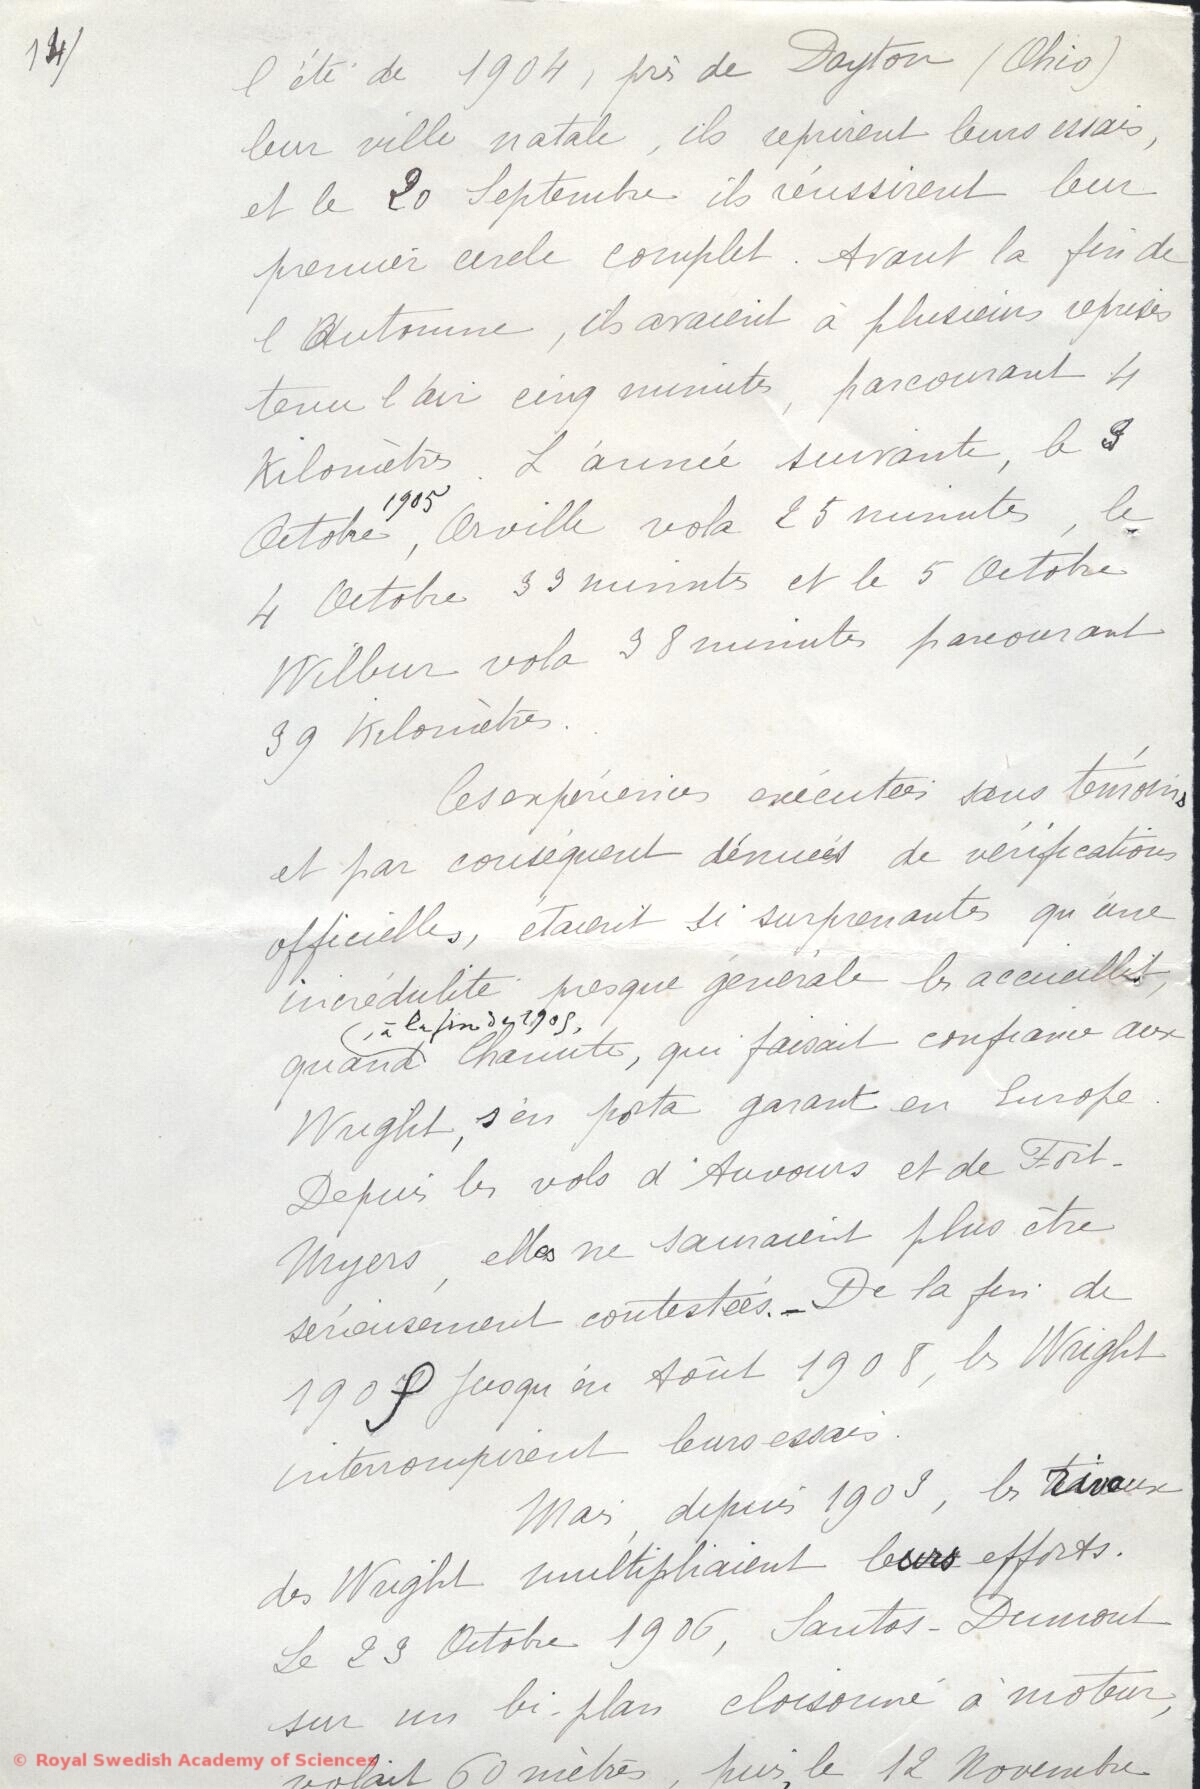 14/
l'été de 1904, près de Dayton (Ohio)
leur ville natale, ils reprirent leurs essais,
et le 20 Septembre ils réussirent leur
premier cercle complet. Avant la fin de
l'Automne, ils avaient à plusieurs reprises
tenu l'air cinq minutes, parcourant 4
Kilomètres. L'année suivante, le 3
Octobre 1905, Orville vola 25 minutes, le
4 Octobre 33 minutes et le 5 Octobre
Wilbur vola 38 minutes parcourant
39 Kilomètres.
Ces expériences exécutées sans témoins
et par conséquent dénuées de vérifications
officielles, étaient si surprenantes qu'une
incrédulité presque générale les accueillit,
, à la fin de 1905,
quand Chanute, qui faisait confiance aux
Wright, s'en porta garant en Europe.
Depuis les vols d'Auvours et de Fort-
Myers, elles ne sauraient plus être
sérieusement contestées. - De la fin de
1905 jusqu'en Août 1908, les Wright
interrompirent leurs essais.
Mais, depuis 1903, les rivaux
des Wright multipliaient leurs efforts.
Le 23 Octobre 1906, Santos-Dumont
sur un bi-plan cloisonné à moteur,
volait 60 mètres, puis, le 12 Novembre
© Royal Swedish Academy of Sciences